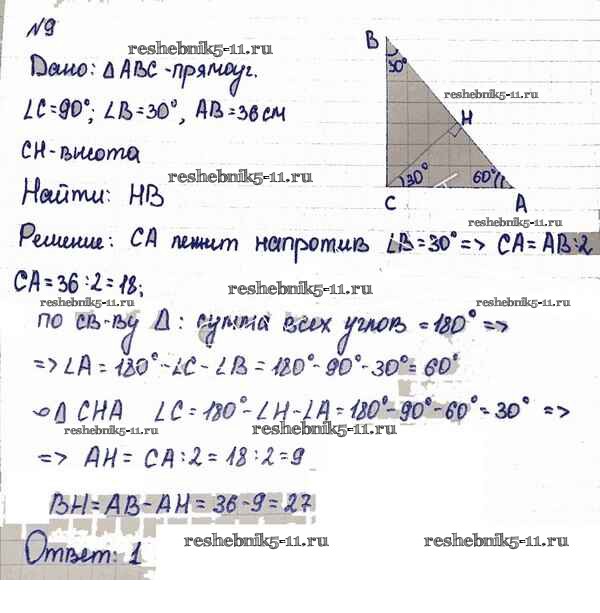 №9
reshebnik5-11.ru
Дано: △ABC-прямоуг.
∠C=90°; ∠B=30°, AB=36см
CH-высота
reshebnik5-11.ru
Найти: HB
B
30°
reshebnik5-11.ru
H
30° 60°
C A
reshebnik5-11.ru
Решение: CA лежит напротив ∠B=30° => CA=AB:2
CA=36:2=18;
reshebnik5-11.ru
reshebnik5-11.ru reshebnik5-11.ru
по св-ву △: сумма всех углов =180° =>
=> ∠A=180°-∠C-∠B=180°-90°-30°=60°
△ CHA ∠C=180°-∠H-∠A=180°-90°-60°=30° =>
reshebnik5-11.ru reshebnik5-11.ru
=> AH= CA:2=18:2=9
BH=AB-AH=36-9=27
Ответ: 1
reshebnik5-11.ru reshebnik5-11.ru